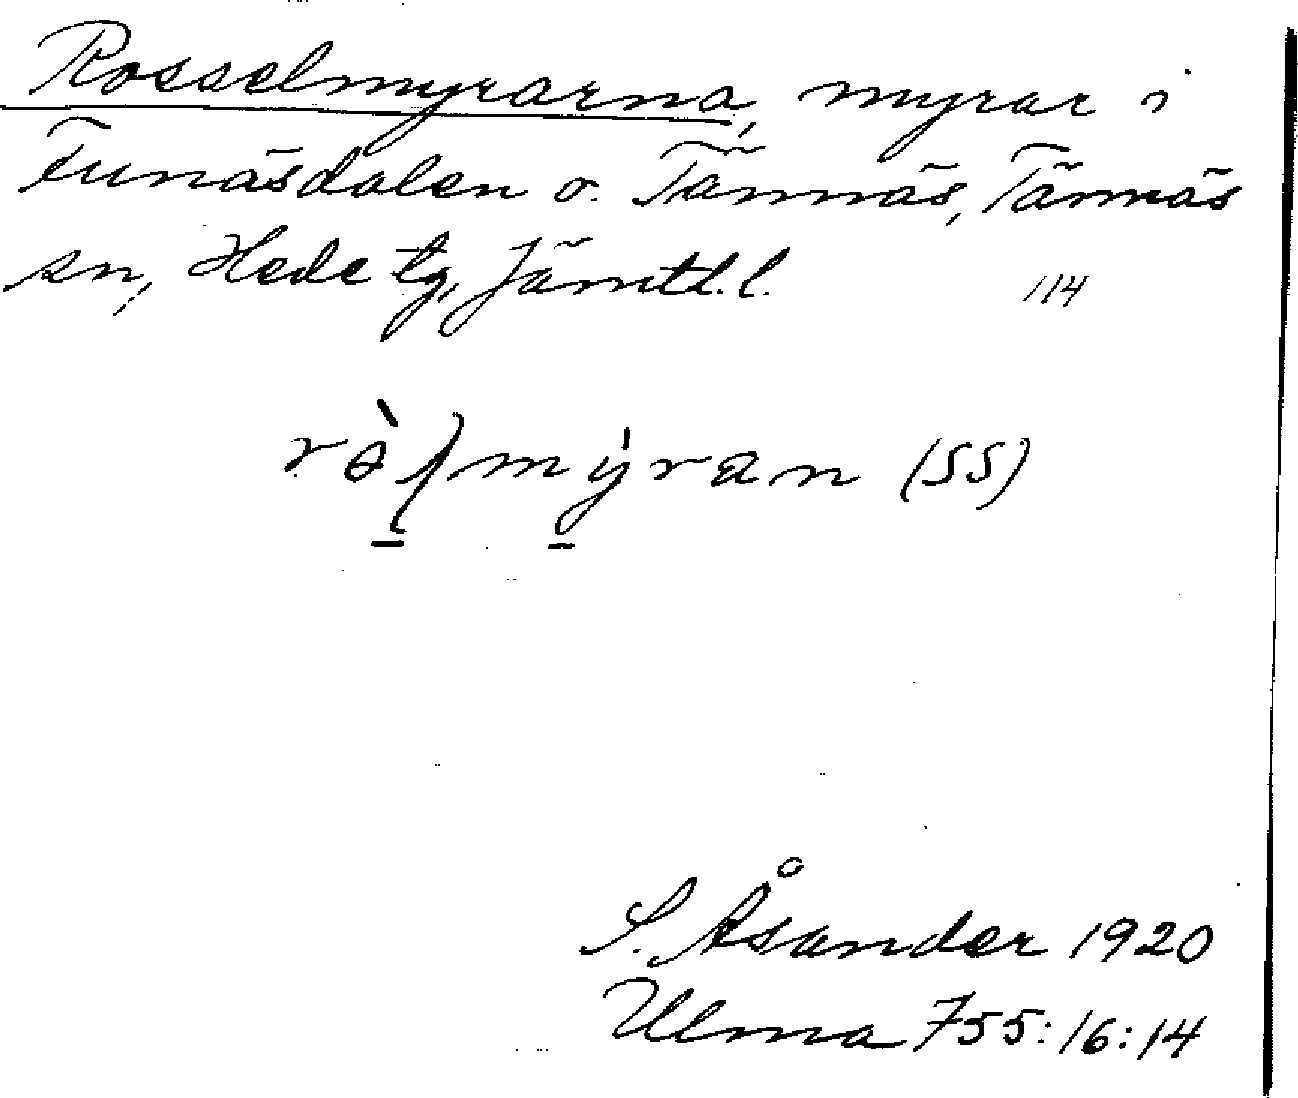 Rosselmyrarna, myrar i
Funäsdalen o. Tännäs, Tännäs
sn, Hede tg, Jämtl. l. 114
(SS)
S. Åsander 1920
Ulma 755:16:14